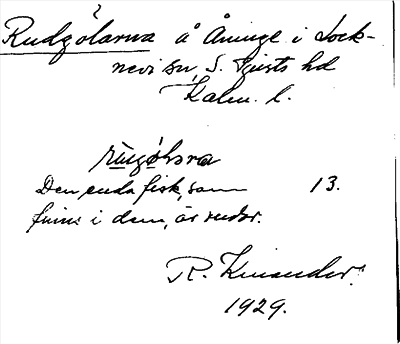 Rudgölarna å Åninge i Lock-
nevi sn, S. Tjusts hd
Kalm. l.
Den enda fisk, som 13.
finns i dem, är rudor.
R. Kinander.
1929.